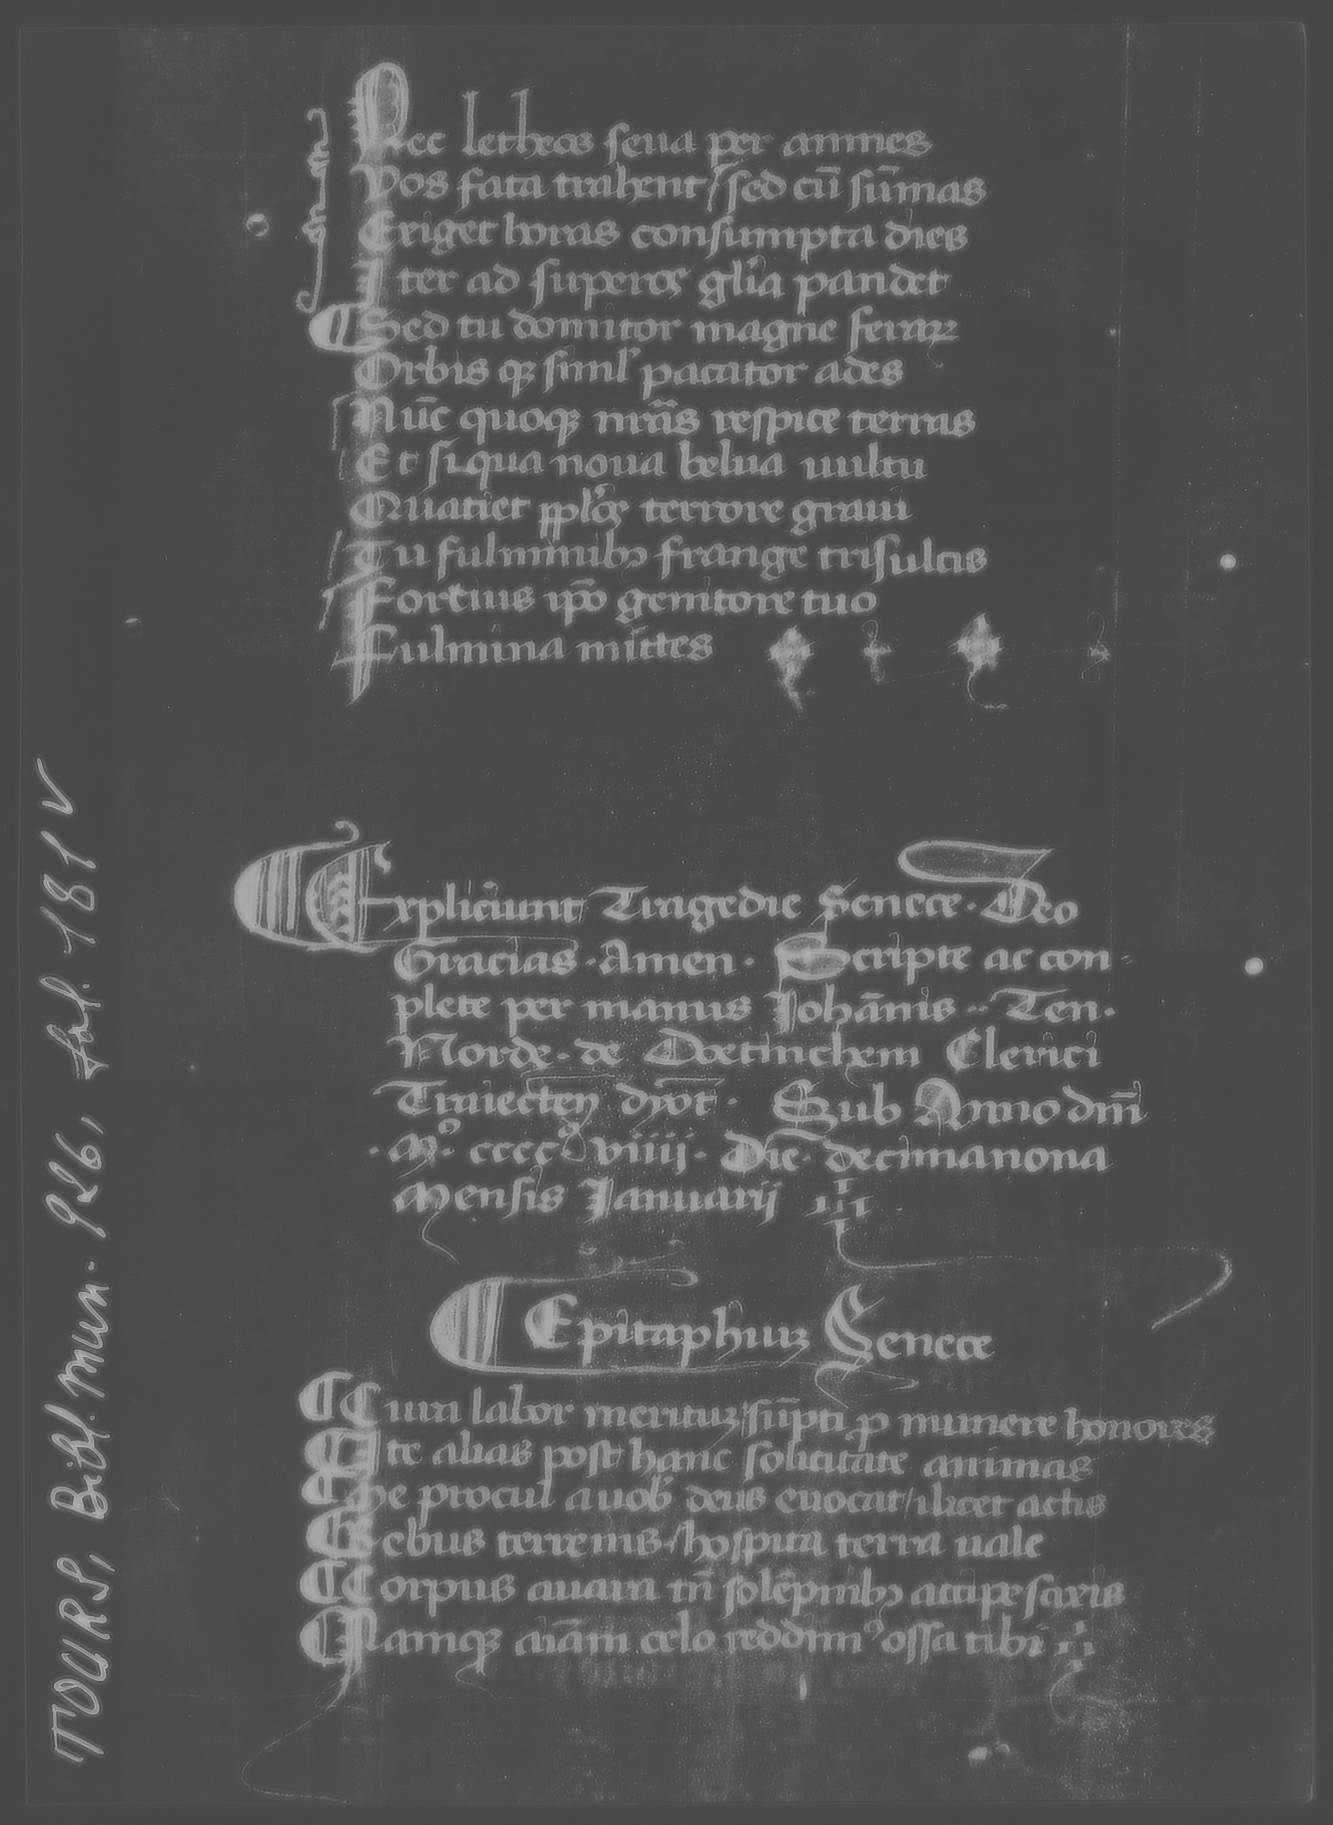 Nec letheos seua per amnes
Vos fata trahent / sed cū sūmas
Exiget horas consumpta dies
Iter ad superos gl̄ia pandet
Sed tu domitor magne feraꝝ
Orbis qꝫ siml̉ pacator ades
Nūc quoqꝫ nr̄as respice terras
Et siqua noua belua uultu
Quatiet ppl̉os terrore graui
Tu fulminibꝫ frange trisulcis
Fortius ip̄o genitore tuo
Fulmina mittes
Expliciunt Tragedie Senece · Deo
Gracias · Amen · Scripte ac con-
plete per manus Johānis ·· Ten ·
Norde · de Doetinchem Clerici
Traiecten̄ dyoc̄ · Sub Anno dn̄i
· Mͦ · ccccͦ viiii · Die · decimanona
Mensis Januarij
Epitaphiuꝫ Senece
Cura labor merituꝫ / sūpti ꝓ munere honores
Ite alias post hanc solicitate animas
Me procul a uob̉ deus euocat / ilicet actis
Rebus terrenis / hospita terra uale
Corpus auara tn̄ solēpnibꝫ accipe saxis
Namqꝫ aīam celo reddimꝰ ossa tibi
TOURS, Bibl. mun. 926, fol. 181 v